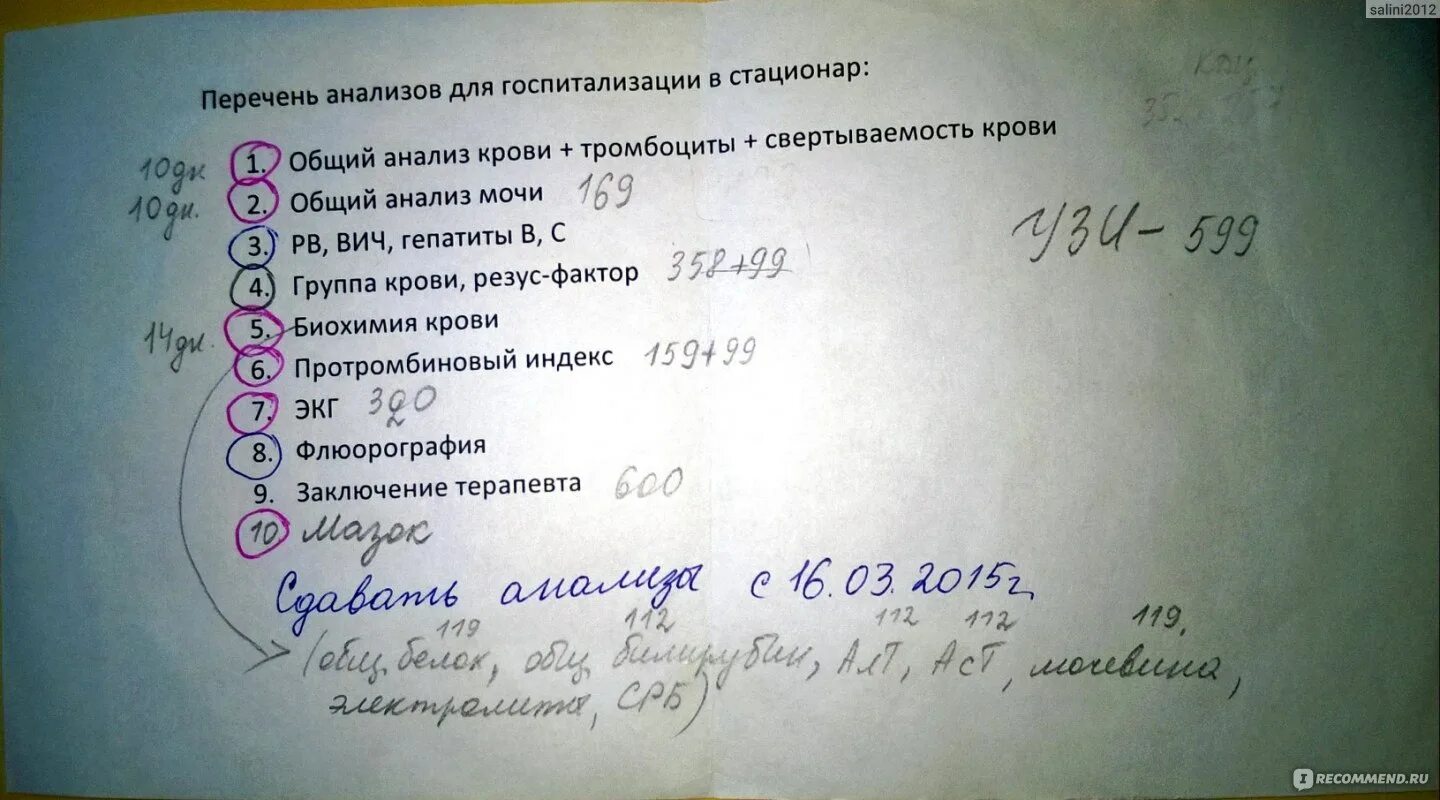 salini2012
Перечень анализов для госпитализации в стационар:
10дн 1. Общий анализ крови + тромбоциты + свертываемость крови
10дн. 2. Общий анализ мочи 169
3. РВ, ВИЧ, гепатиты В, С
УЗИ – 599
4. Группа крови, резус-фактор 358+99
14дн. 5. Биохимия крови
6. Протромбиновый индекс 159+99
7. ЭКГ 320
8. Флюорография
9. Заключение терапевта 600
10. Мазок
Сдавать анализы с 16.03.2015г.
119 112 112 112 119.
(общ белок, общ билирубин, АлТ, АсТ, мочевина,
электролиты, СРБ)
RECOMMEND.RU